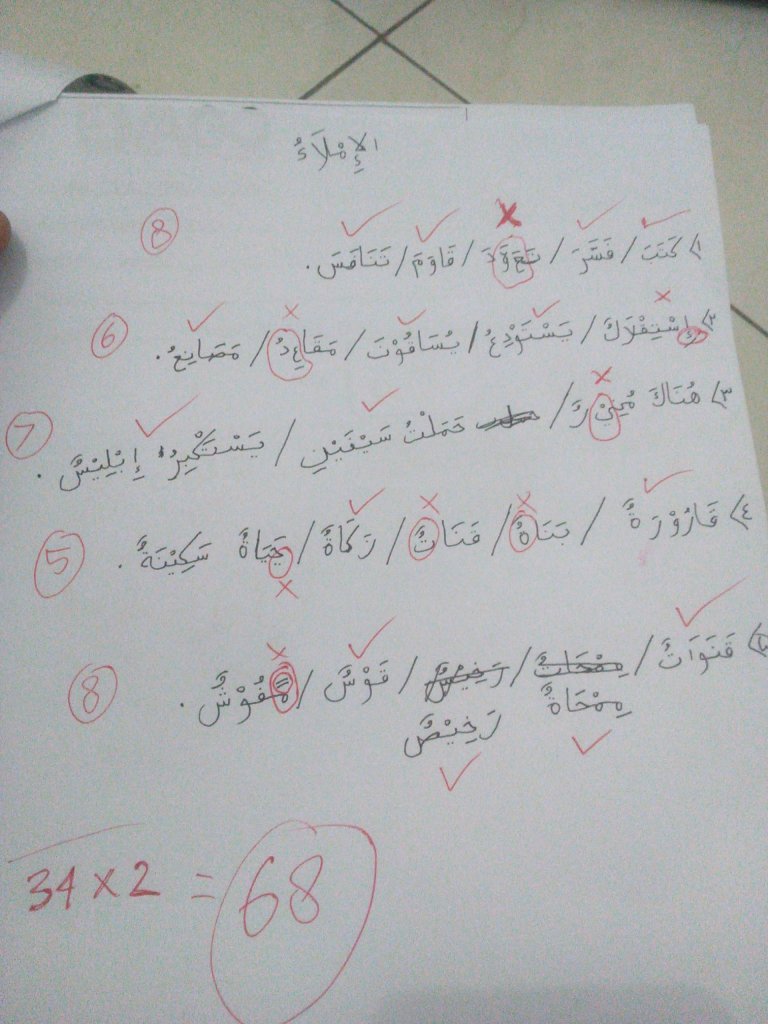 الإِمْلَاءُ
١) كَتَبَ / فَسَّرَ / تَعَوَّدَ / قَاوَمَ / تَنَافَسَ .
8
٢) إِسْتِقْلَاكْ / يَسْتَوْدِعُ / يُسَاقُوْنَ / مَقَاعِدُ / مَصَانِعُ .
6
٣) هُنَاكَ / حَمَلْتُ سَيْفَيْنِ / يَسْتَكْبِرُ إِبْلِيْسُ .
7
٤) قَارُوْرَةٌ / بَنَاةٌ / قَنَاتٌ / زَكَاةٌ / حَيَاةٌ سَكِيْنَةٌ .
5
٥) قَنَوَاتٌ / مِمْحَاتٌ / رَخِيْسٌ / قَوْسٌ / مَفُوْشٌ .
مِمْحَاةٌ
رَخِيْصٌ
8
34 x 2 = 68